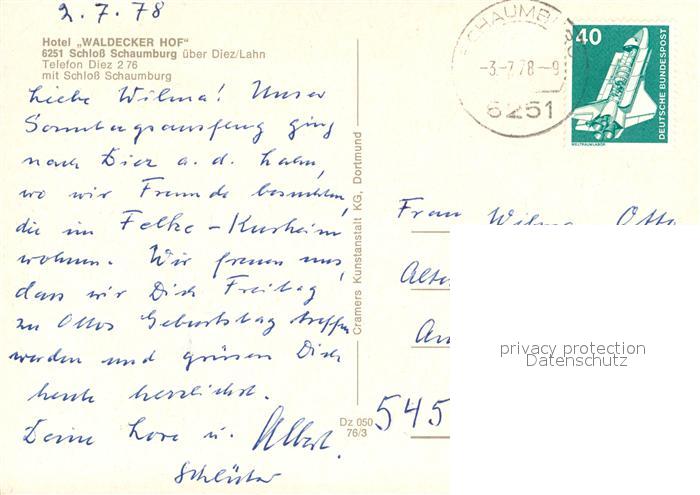 2.7.78
Hotel „WALDECKER HOF“
6251 Schloß Schaumburg über Diez/Lahn
Telefon Diez 2 76
mit Schloß Schaumburg
Liebe Wilma! Unser
Sonntagsausflug ging
nach Diez a. d. Lahn,
wo wir Freunde besuchten,
die im Felke-Kurheim
wohnen. Wir freuen uns,
dass wir Dich Freitag
zu Ottos Geburtstag treffen
werden und grüssen Dich
heute herzlichst.
Deine Lore u. Albert.
Schlüter
Cramers Kunstanstalt KG, Dortmund
Dz 050
76/3
SCHAUMBURG
-3.-7.78-9
6251
40
DEUTSCHE BUNDESPOST
WELTRAUMLABOR
Frau Wilma Otto
545
privacy protection
Datenschutz